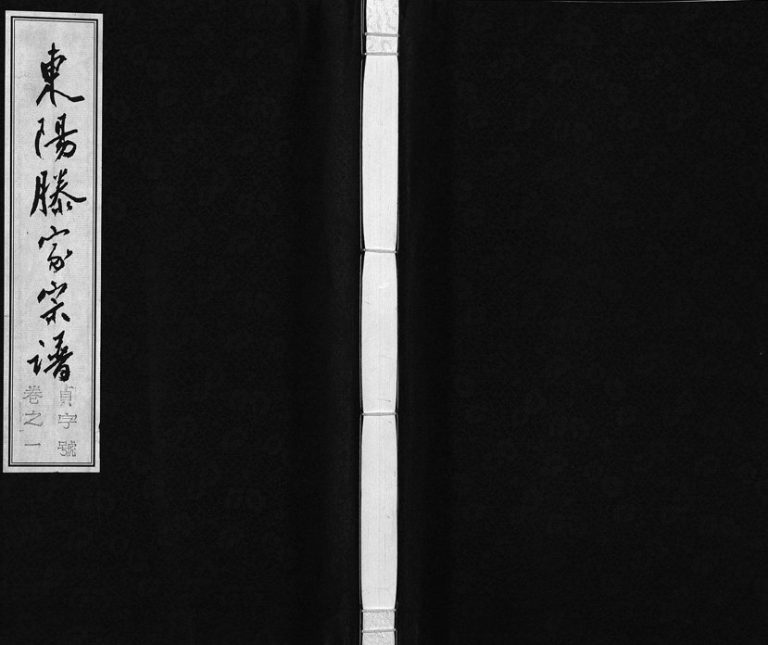 東陽滕家宗譜
貞字號
卷之一